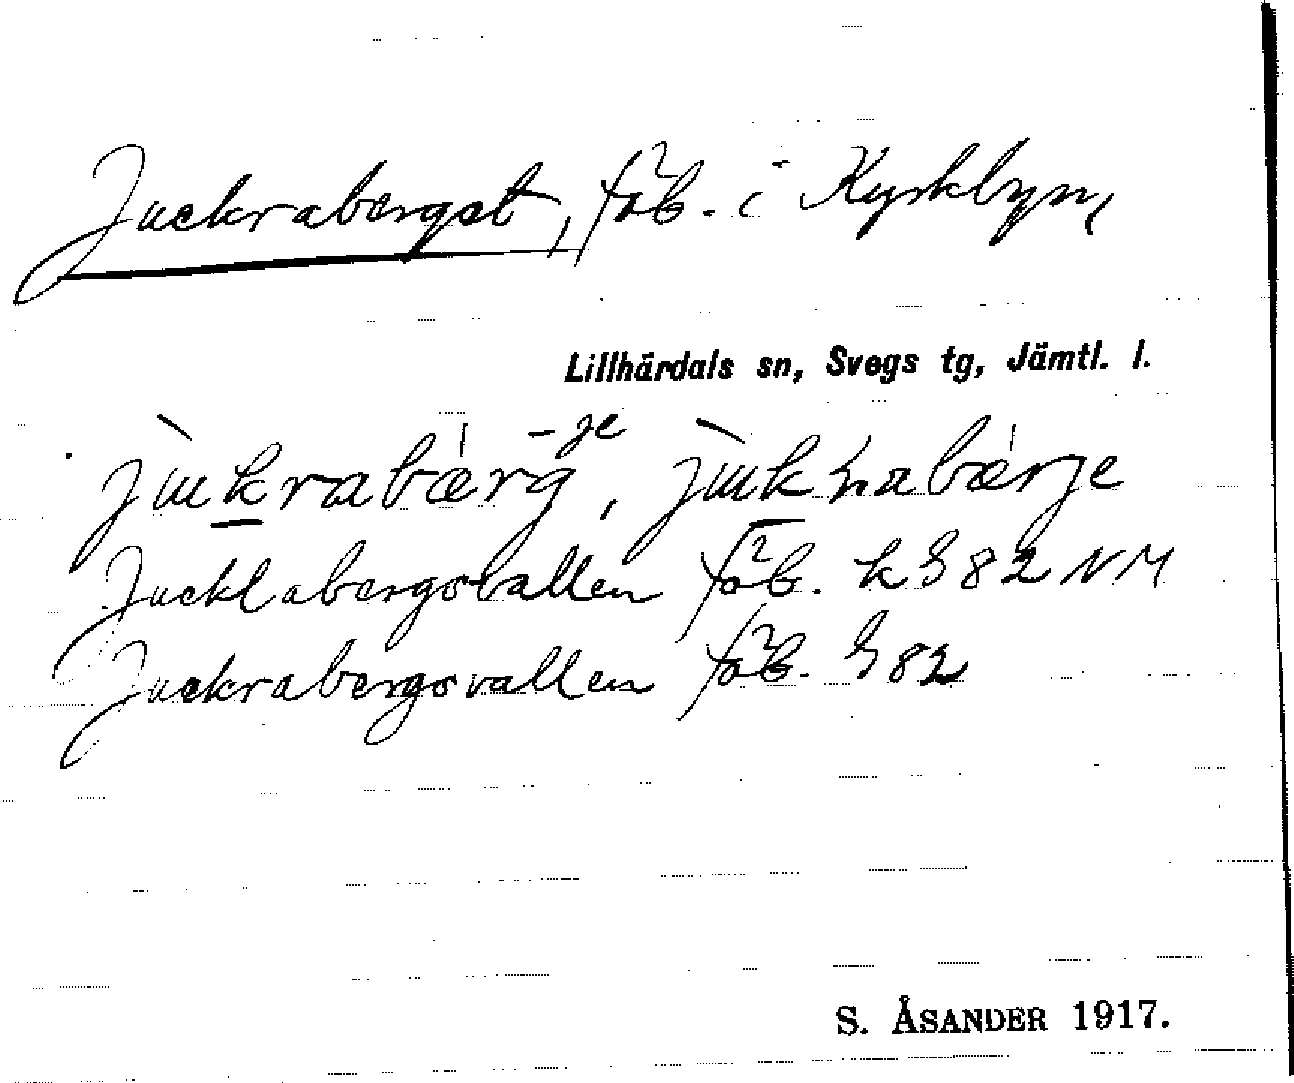 Juckraberget, fäb. i Kyrkbyn,
Lillhärdals sn, Svegs tg, Jämtl. l.
-je
Jucklabergsvallen fäb. k G 82 NM
Juckrabergsvallen fäb. G 82
S. ÅSANDER 1917.